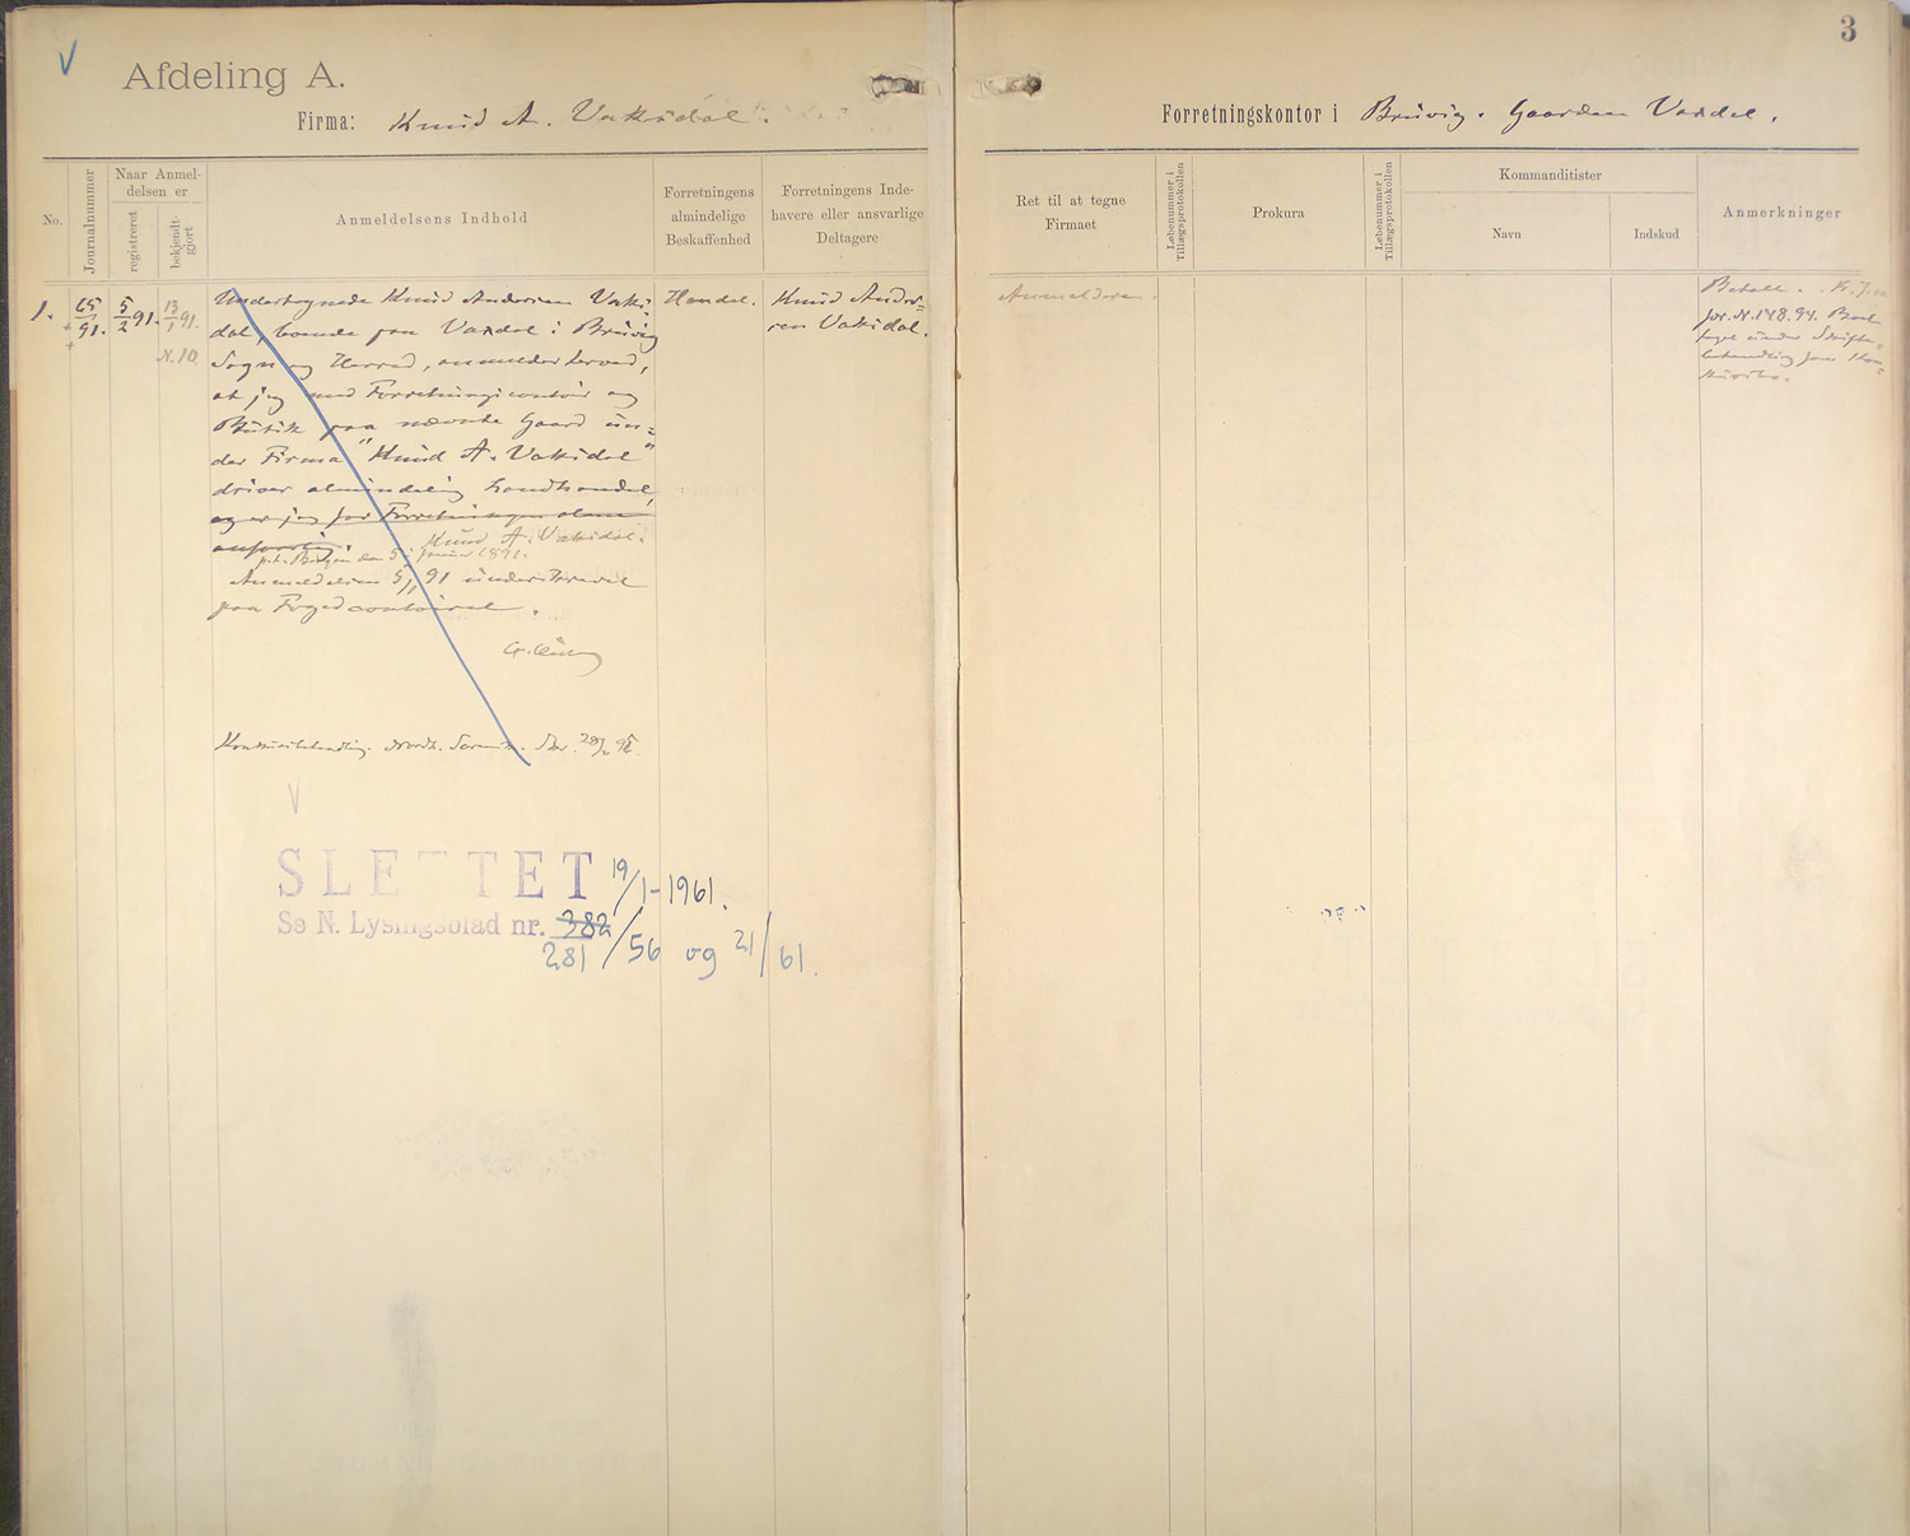 3
V
Afdeling A.
Firma: Knud A. Vaksdal.
Forretningskontor i Bruvig. Gaarden Vaxdal.
No.
Journalnummer
Naar Anmel-
delsen er
registreret
bekjendt-
gjort
Anmeldelsens Indhold
Forretningens
almindelige
Beskaffenhed
Forretningens Inde-
havere eller ansvarlige
Deltagere
Ret til at tegne
Firmaet
Løbenummer i
Tillægsprotokollen
Prokura
Løbenummer i
Tillægsprotokollen
Kommanditister
Navn
Indskud
Anmerkninger
1.
65
91.
5/2 91.
13/1 91.
N. 10.
Undertegnede Knud Andersen Vaks-
dal, boende paa Vaxdal i Bruvig
Sogn og Herred, anmelder herved,
at jeg med Forretningscontoir og
Butik paa nævnte Gaard un-
der Firma "Knud A. Vaksdal"
driver almindelig Landhandel,
og er jeg for Forretningen alene
ansvarlig.
Knud A. Vaksdal.
p.t. Bergen den 5 Januar 1891.
Anmeldelsen 5/1 91 underskrevet
paa Fogedcontoiret.
Konkursbehandling. 28/ 95.
V
SLETTET 19/1-1961.
Se N. Lysingsblad nr. 382
281/56 og 21/61.
Handel.
Knud Ander-
sen Vaksdal.
Anmelderen.
Betalt.
Jor. N. 148. 94. Boet
taget under Skifte-
behandling som Kon-
kursbo.